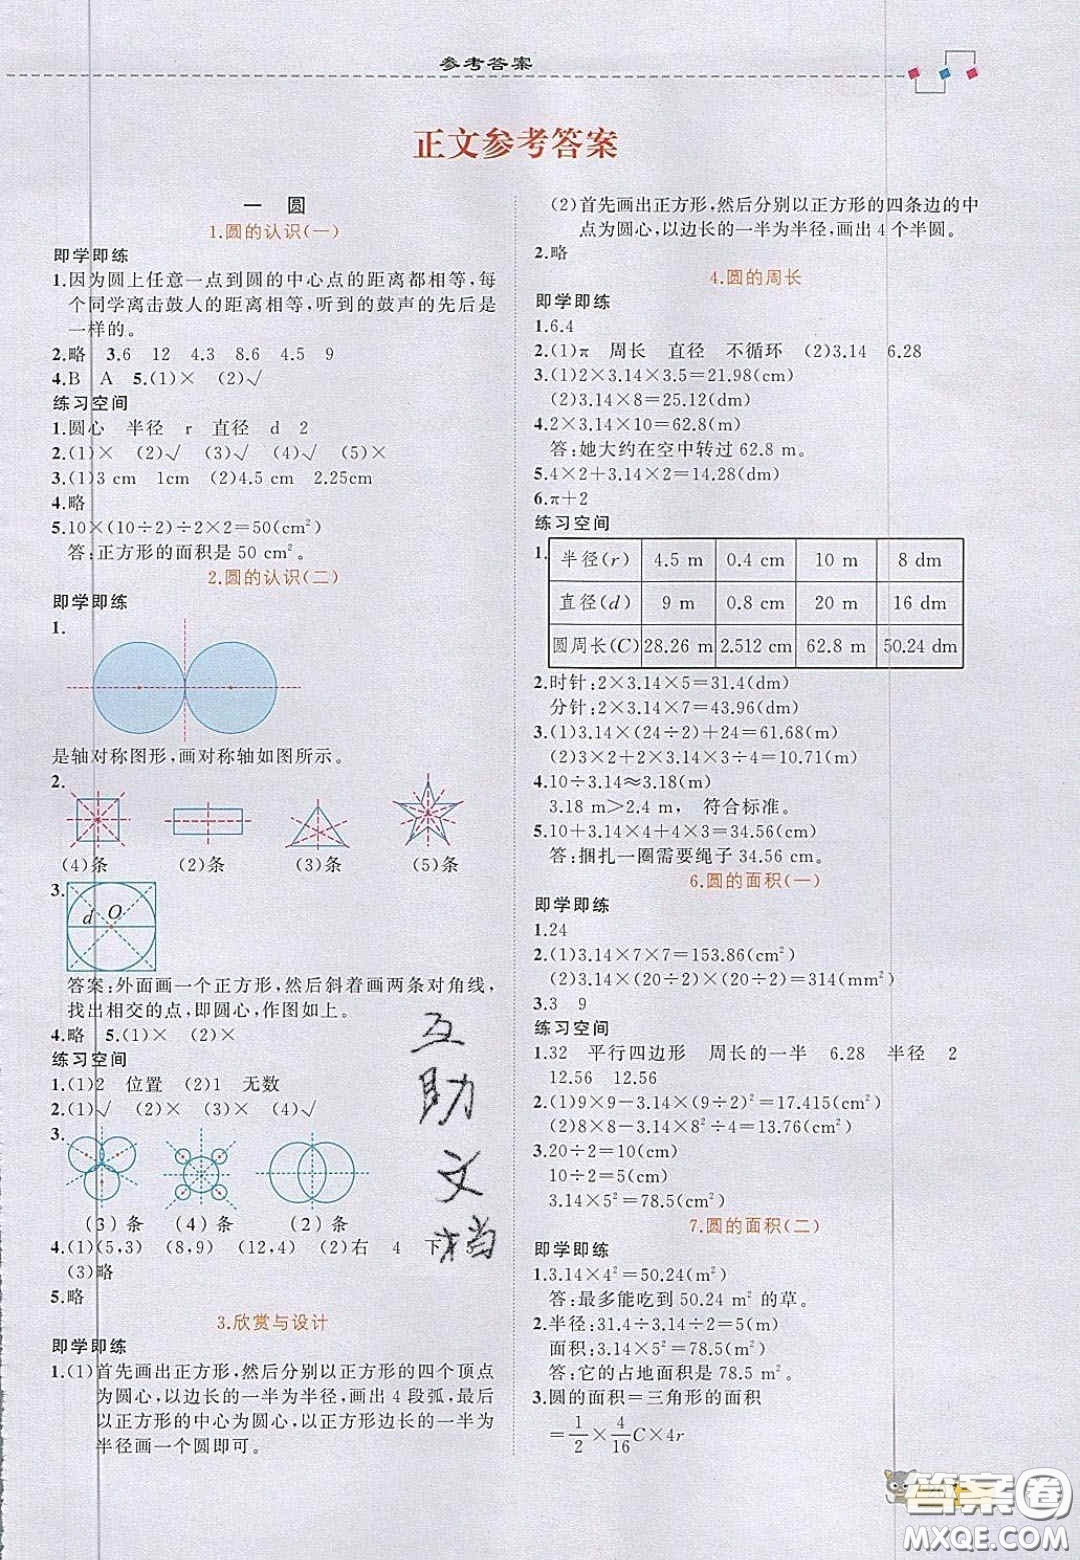 参考答案
正文参考答案
一 圆
1.圆的认识(一)
即学即练
1.因为圆上任意一点到圆的中心点的距离都相等,每
个同学离击鼓人的距离相等,听到的鼓声的先后是
一样的。
2.略 3.6 12 4.3 8.6 4.5 9
4.B A 5.(1)× (2)√
练习空间
1.圆心 半径 r 直径 d 2
2.(1)× (2)√ (3)√ (4)√ (5)×
3.(1)3 cm 1cm (2)4.5 cm 2.25cm
4.略
5.10×(10÷2)÷2×2=50(cm²)
答:正方形的面积是 50 cm²。
2.圆的认识(二)
即学即练
1.
是轴对称图形,画对称轴如图所示。
2.
(4)条 (2)条 (3)条 (5)条
3.
d O
答案:外面画一个正方形,然后斜着画两条对角线,
找出相交的点,即圆心,作图如上。
4.略 5.(1)× (2)×
练习空间
1.(1)2 位置 (2)1 无数
2.(1)√ (2)× (3)× (4)√
3.
(3)条 (4)条 (2)条
4.(1)(5,3) (8,9) (12,4) (2)右 4 下
(3)略
5.略
3.欣赏与设计
即学即练
1.(1)首先画出正方形,然后分别以正方形的四个顶点
为圆心,以边长的一半为半径,画出 4 段弧,最后
以正方形的中心为圆心,以正方形边长的一半为
半径画一个圆即可。
互
助
文
档
(2)首先画出正方形,然后分别以正方形的四条边的中
点为圆心,以边长的一半为半径,画出 4 个半圆。
2.略
4.圆的周长
即学即练
1.6.4
2.(1)π 周长 直径 不循环 (2)3.14 6.28
3.(1)2×3.14×3.5=21.98(cm)
(2)3.14×8=25.12(dm)
4.2×3.14×10=62.8(m)
答:她大约在空中转过 62.8 m。
5.4×2+3.14×4=20.56(cm)
6.π+2
练习空间
1. 半径(r) 4.5 m 0.4 cm 10 m 8 dm
直径(d) 9 m 0.8 cm 20 m 16 dm
圆周长(C) 28.26 m 2.512 cm 62.8 m 50.24 dm
2.时针:2×3.14×5=31.4(dm)
分针:2×3.14×7=43.96(dm)
3.(1)3.14×(24÷2)+24=61.68(m)
(2)3×2+2×3.14×3÷4=10.71(m)
4.10÷3.14≈3.18(m)
3.18 m>2.4 m, 符合标准。
5.10+3.14×4+4×3=34.56(cm)
答:捆扎一圈需要绳子 34.56 cm。
6.圆的面积(一)
即学即练
1.24
2.(1)3.14×7×7=153.86(cm²)
(2)3.14×(20÷2)×(20÷2)=314(mm²)
3.3 9
练习空间
1.32 平行四边形 周长的一半 6.28 半径 2
12.56 12.56
2.(1)9×9−3.14×(9÷2)²=17.415(cm²)
(2)8×8−3.14×8²÷4=13.76(cm²)
3.20÷2=10(cm)
10÷2=5(cm)
3.14×5²=78.5(cm²)
7.圆的面积(二)
即学即练
1.3.14×4²=50.24(m²)
答:最多能吃到 50.24 m² 的草。
2.半径:31.4÷3.14÷2=5(m)
面积:3.14×5²=78.5(m²)
答:它的占地面积是 78.5 m²。
3.圆的面积=三角形的面积
=1/2×4/16C×4r
答案圈
MXQE.COM